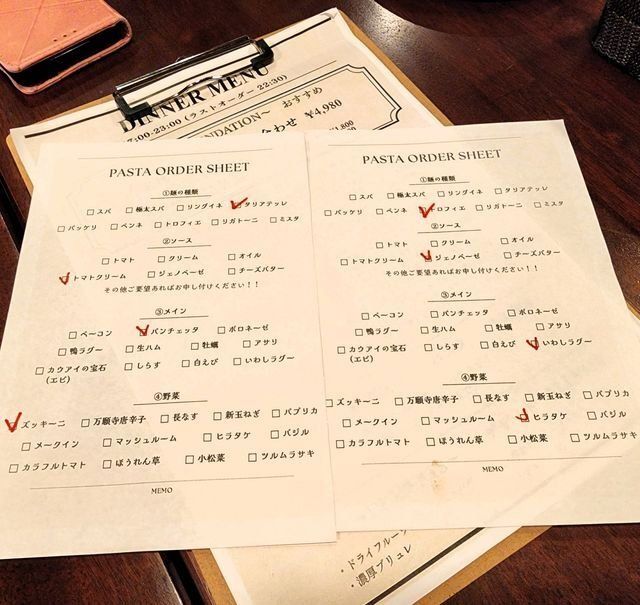 DINNER MENU
17:00-23:00 (ラストオーダー 22:30)
NDATION～ おすすめ
わせ ¥4,980
¥1,800
PASTA ORDER SHEET
①麺の種類
□スパ □極太スパ □リングイネ □タリアテッレ
□パッケリ □ペンネ □トロフィエ □リガトーニ □ミスタ
②ソース
□トマト □クリーム □オイル
□トマトクリーム □ジェノベーゼ □チーズバター
その他ご要望あればお申し付けください！！
③メイン
□ベーコン □パンチェッタ □ボロネーゼ
□鴨ラグー □生ハム □牡蠣 □アサリ
□カウアイの宝石 □しらす □白えび □いわしラグー
(エビ)
④野菜
□ズッキーニ □万願寺唐辛子 □長なす □新玉ねぎ □パプリカ
□メークイン □マッシュルーム □ヒラタケ □バジル
□カラフルトマト □ほうれん草 □小松菜 □ツルムラサキ
MEMO
PASTA ORDER SHEET
①麺の種類
□スパ □極太スパ □リングイネ □タリアテッレ
□パッケリ □ペンネ □トロフィエ □リガトーニ □ミスタ
②ソース
□トマト □クリーム □オイル
□トマトクリーム □ジェノベーゼ □チーズバター
その他ご要望あればお申し付けください！！
③メイン
□ベーコン □パンチェッタ □ボロネーゼ
□鴨ラグー □生ハム □牡蠣 □アサリ
□カウアイの宝石 □しらす □白えび □いわしラグー
(エビ)
④野菜
□ズッキーニ □万願寺唐辛子 □長なす □新玉ねぎ □パプリカ
□メークイン □マッシュルーム □ヒラタケ □バジル
□カラフルトマト □ほうれん草 □小松菜 □ツルムラサキ
MEMO
・ドライフルー
・濃厚ブリュレ